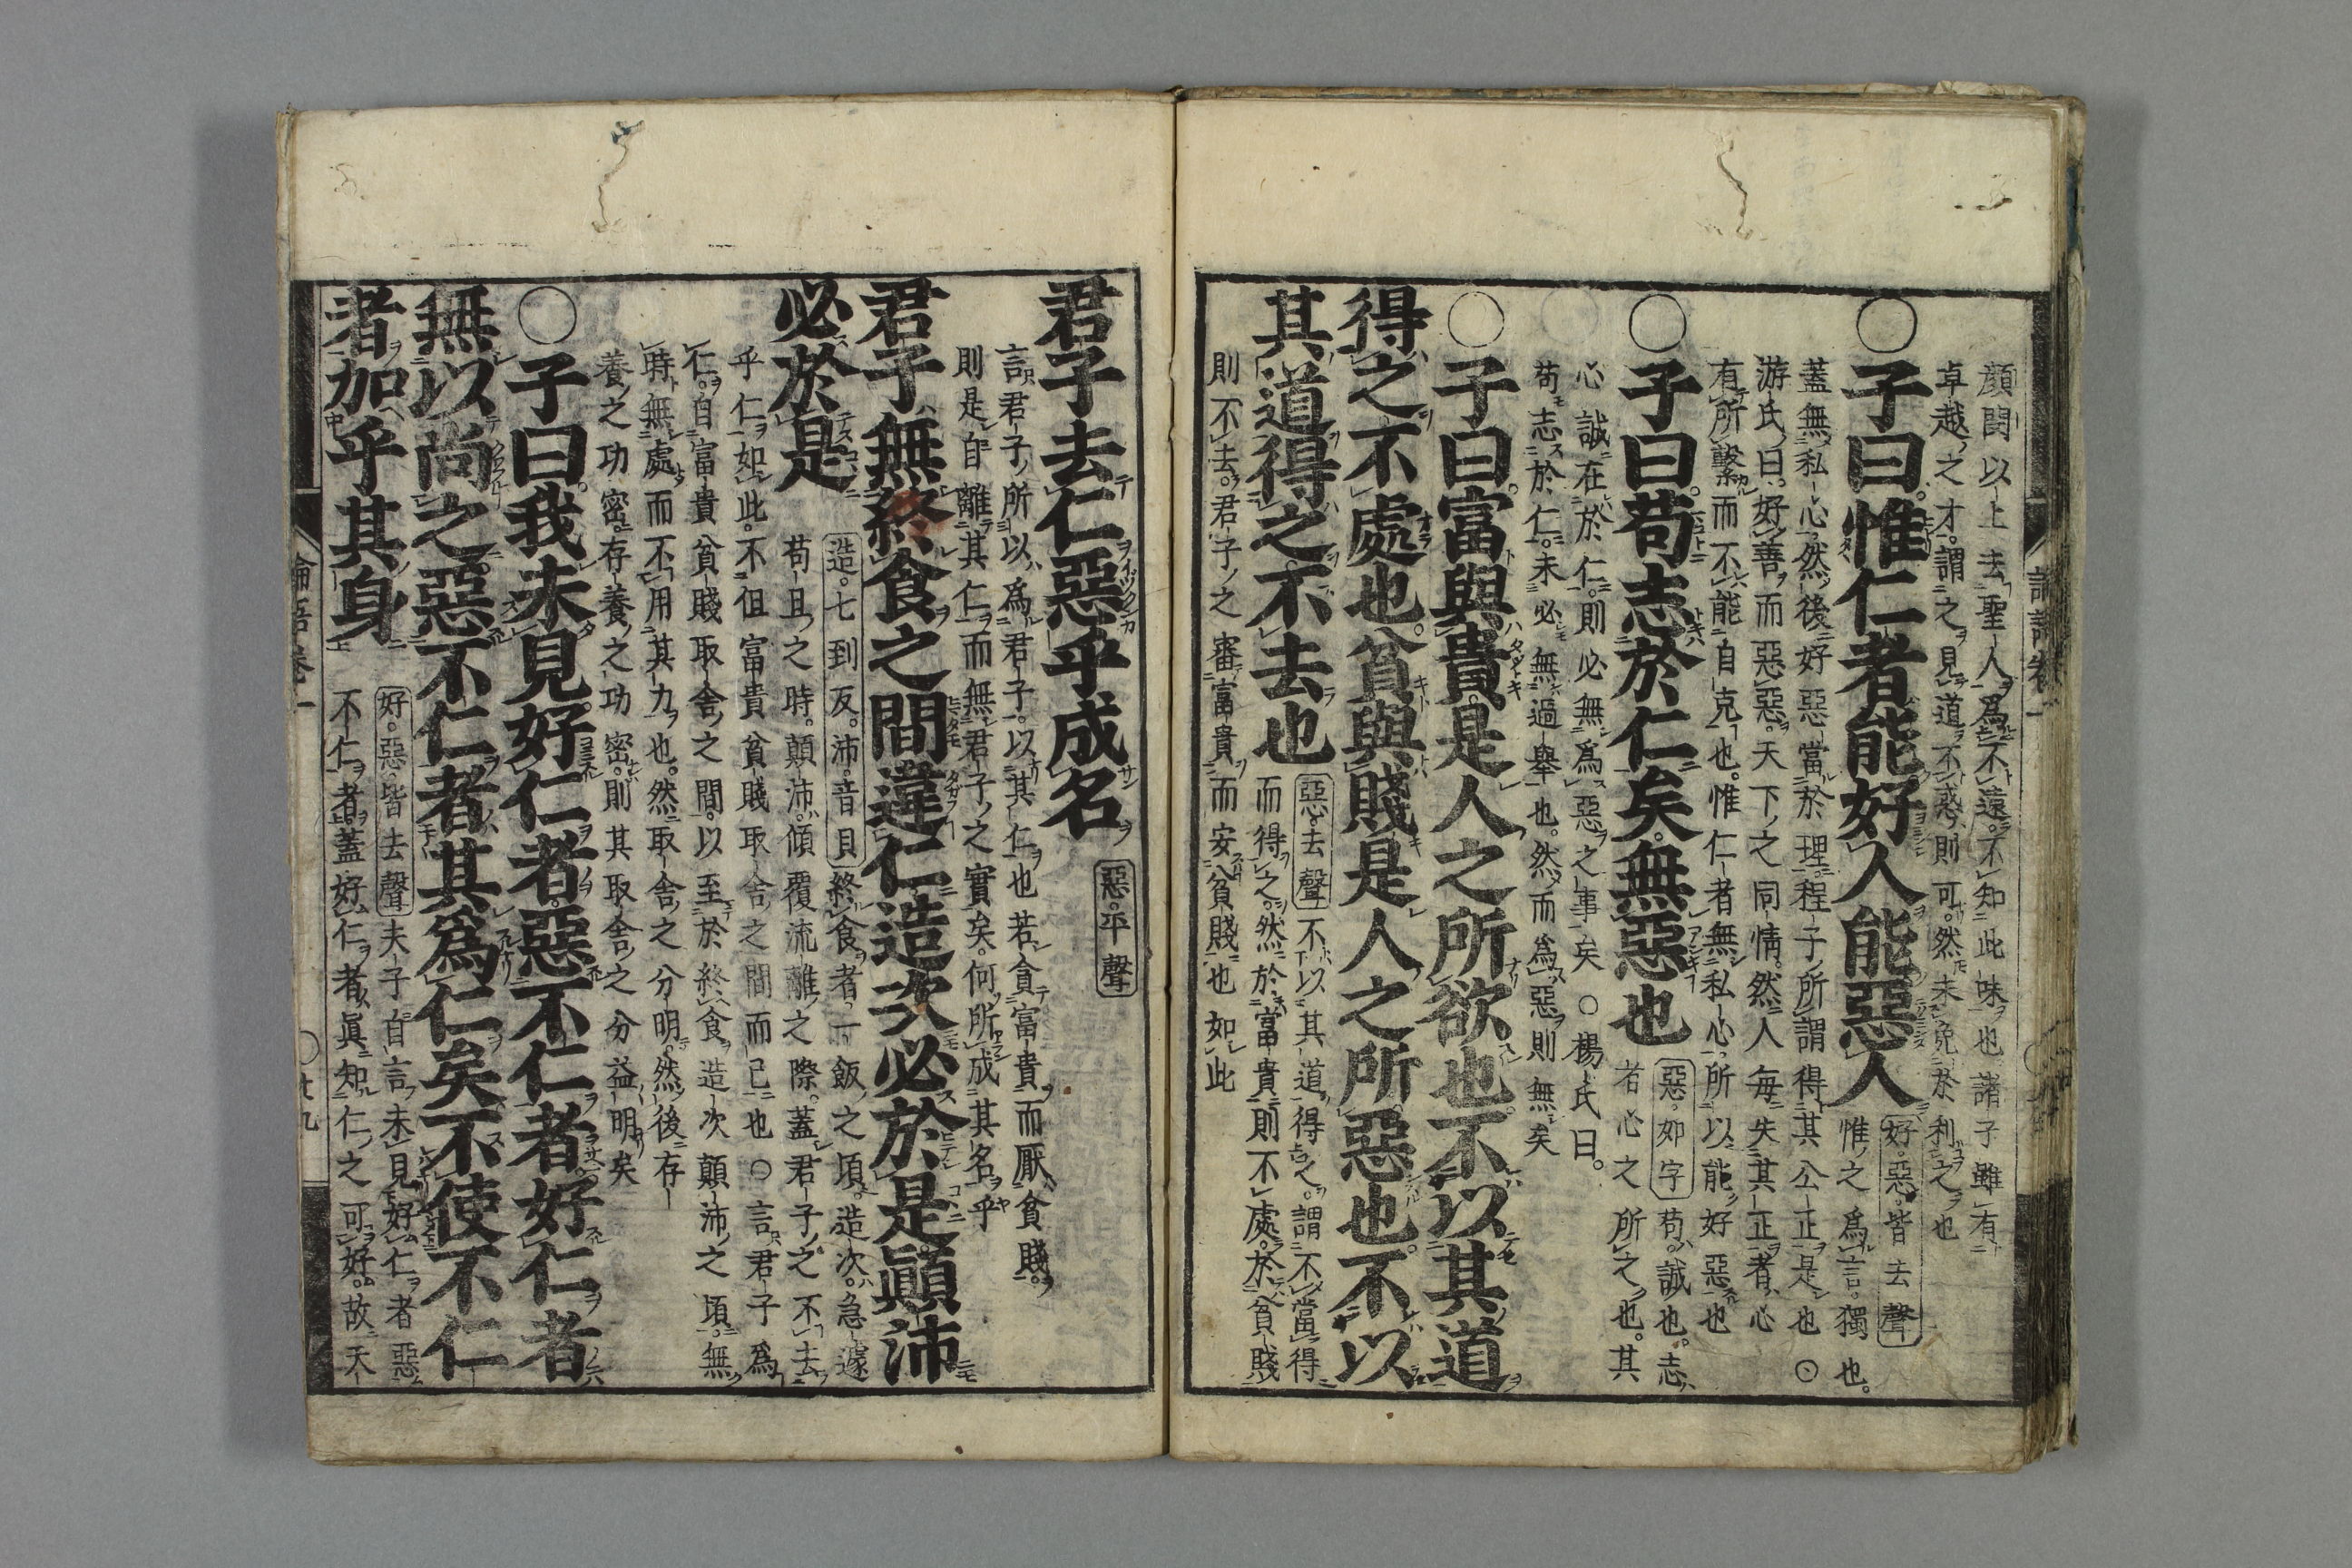 顏閔以上去聖人爲不遠不知此味也諸子雖有
卓越之才謂之見道不惑則可然未免於利之也
○子曰惟仁者能好人能惡人
好惡皆去聲
惟之爲言獨也
蓋無私心然後好惡當於理程子所謂得其公正是也○
游氏曰好善而惡惡天下之同情然人每失其正者心
有所繫而不能自克也惟仁者無私心所以能好惡也
○子曰苟志於仁矣無惡也
惡如字苟誠也志
者心之所之也其
心誠在於仁則必無爲惡之事矣○楊氏曰
苟志於仁未必無過舉也然而爲惡則無矣
○子曰富與貴是人之所欲也不以其道
得之不處也貧與賤是人之所惡也不以
其道得之不去也
惡去聲不以其道得之謂不當得
而得之然於富貴則不處於貧賤
則不去君子之審富貴而安貧賤也如此
君子去仁惡乎成名
惡平聲
言君子所以爲君子以其仁也若貪富貴而厭貧賤
則是自離其仁而無君子之實矣何所成其名乎
君子無終食之間違仁造次必於是顚沛
必於是
造七到反沛音貝終食者一飯之頃造次急遽
苟且之時顛沛傾覆流離之際蓋君子之不去
乎仁如此不但富貴貧賤取舍之間而已也○言君子爲
仁自富貴貧賤取舍之間以至於終食造次顛沛之頃無
時無處而不用其力也然取舍之分明然後存
養之功密存養之功密則其取舍之分益明矣
○子曰我未見好仁者惡不仁者好仁者
無以尚之惡不仁者其爲仁矣不使不仁
者加乎其身
好惡皆去聲夫子自言未見好仁者惡
不仁者蓋好仁者眞知仁之可好故天
論語卷一
○廿九